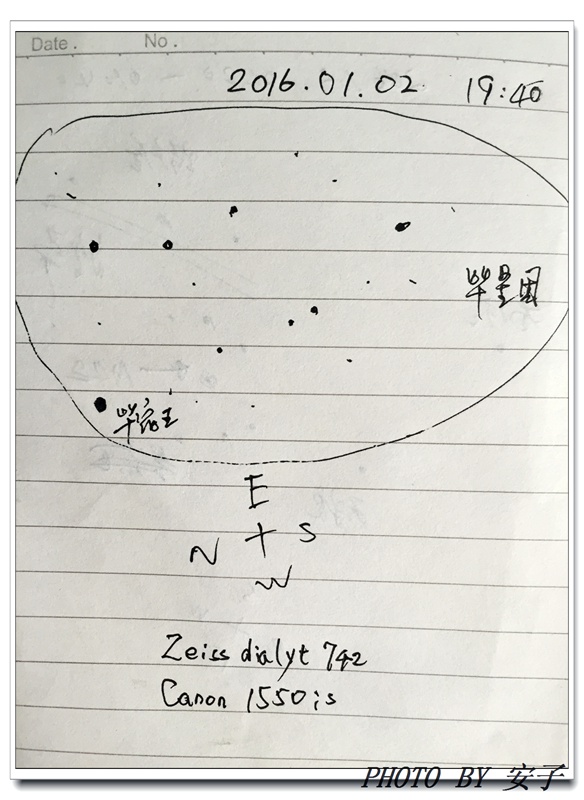 Date. No.
2016.01.02 19:40
毕星团
毕宿五
E
N S
W
Zeiss dialyt 742
Canon 1550is
PHOTO BY 安子